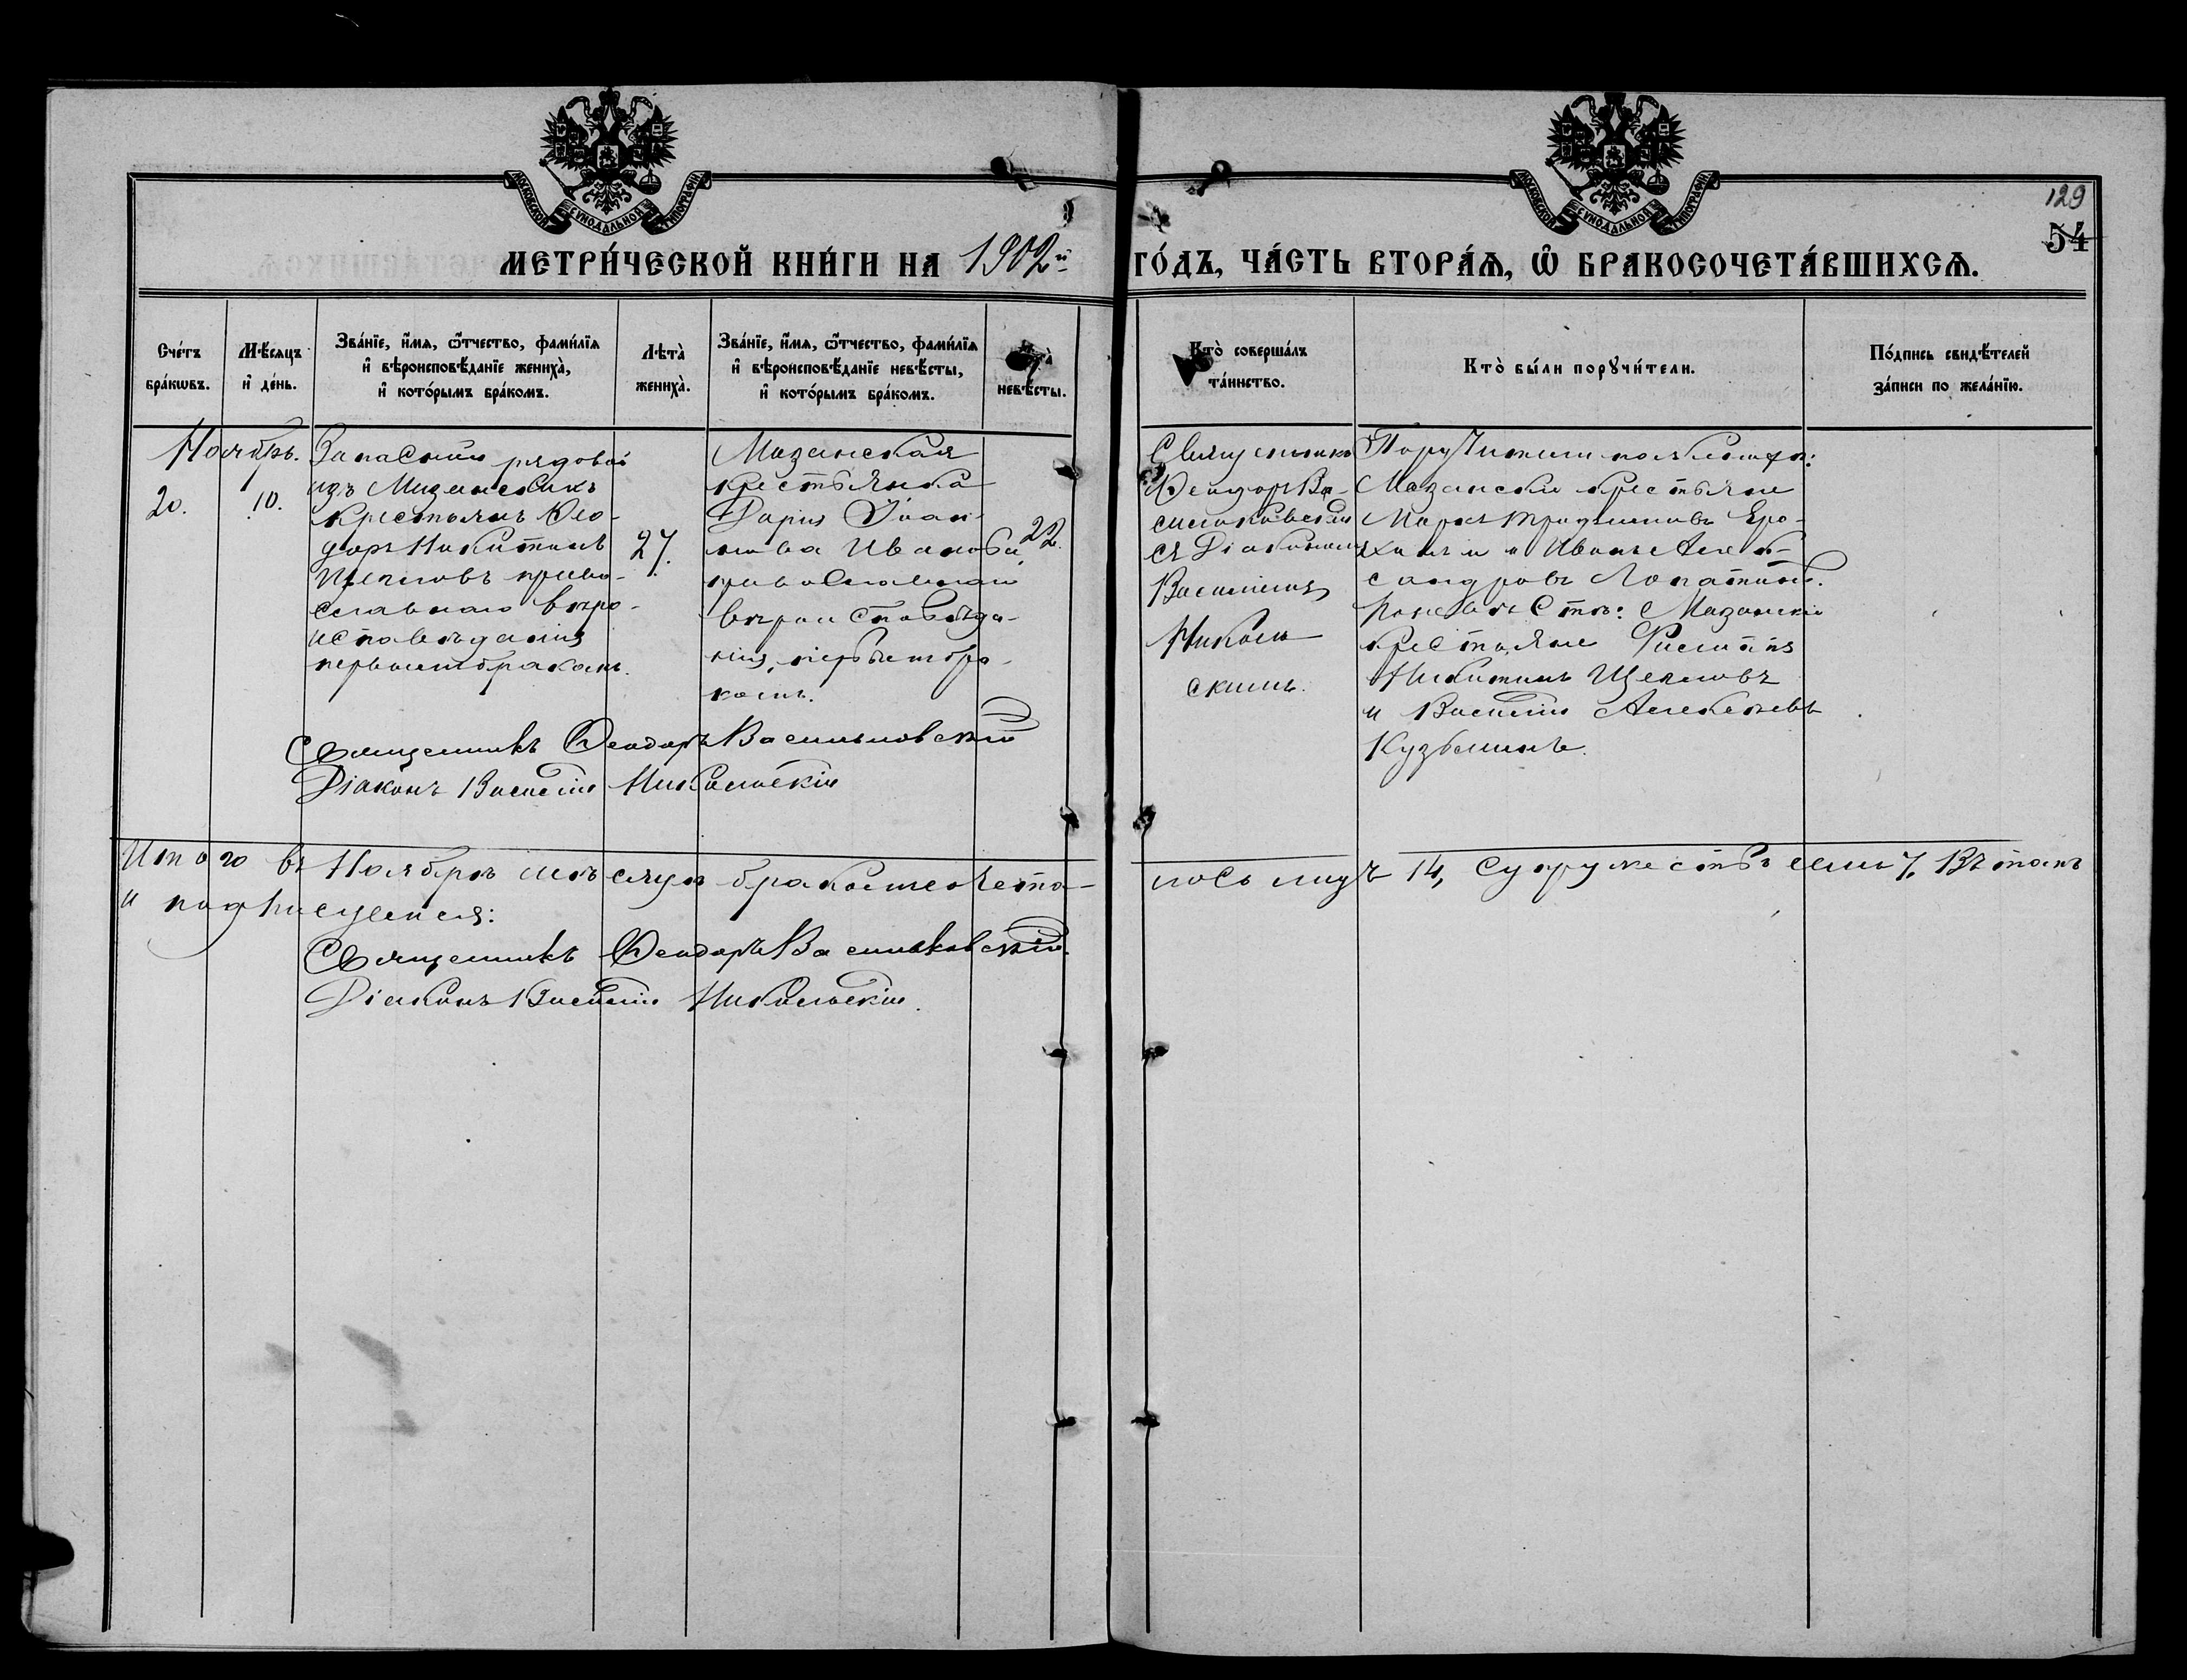 129
54
МЕТРИ́ЧЕСКОЙ КНИ́ГИ НА 1902й ГО́ДЪ, ЧА́СТЬ ВТОРА́Ѧ, Ѽ БРАКОСОЧЕТА́ВШИХСѦ.
МОСКОВСКОЙ СѴНОДАЛЬНОЙ ТИПОГРАФІИ
МОСКОВСКОЙ СѴНОДАЛЬНОЙ ТИПОГРАФІИ
Сче́тъ
бра́кѡвъ.
Мѣ́сяцъ
и҆ де́нь.
Зва́нїе, и҆́мя, ѻ҆́тчество, фами́лїя
и҆ вѣроисповѣ́данїе жениха̀,
и҆ кото́рымъ бра́комъ.
Лѣта̀
жениха̀.
Зва́нїе, и҆́мя, ѻ҆́тчество, фами́лїя
и҆ вѣроисповѣ́данїе невѣ́сты,
и҆ кото́рымъ бра́комъ.
невѣ́сты.
Кто̀ соверша́лъ
та́инство.
Кто̀ бы́ли порꙋчи́тели.
По́дпись свидѣ́телей
за́писи по жела́нїю.
Ноябрь.
20.
10.
Запасный рядовой
изъ Мазанскихъ
крестьянъ Ѳео-
доръ Никитинъ
Щепловъ право-
славнаго вѣро-
исповѣданія
первымъ бракомъ.
27.
Мазанская
крестьянка
Дарія Іоан-
нова Иванова
православнаго
вѣроисповѣда-
нія, первымъ бра-
комъ.
22.
Священникъ
Ѳеодоръ Ва-
сильковскій
съ Діакономъ
Василіемъ
Николь-
скимъ.
Поручители по женихѣ:
Мазанскіе крестьяне
Ерo-
и Иванъ Алек-
сандровъ Лопатинъ.
по невѣстѣ: Мазанскіе
крестьяне
Никитинъ Щепловъ
и Василій Алексѣевъ
Кузьминъ.
Священникъ Ѳеодоръ Васильковскій
Діаконъ Василій Никольскій
Итого въ Ноябрѣ мѣсяцѣ бракомъ сочета-
лось лицъ 14, супружествъ семь 7. Въ томъ
и подписуемся:
Священникъ Ѳеодоръ Васильковскій.
Діаконъ Василій Никольскій.